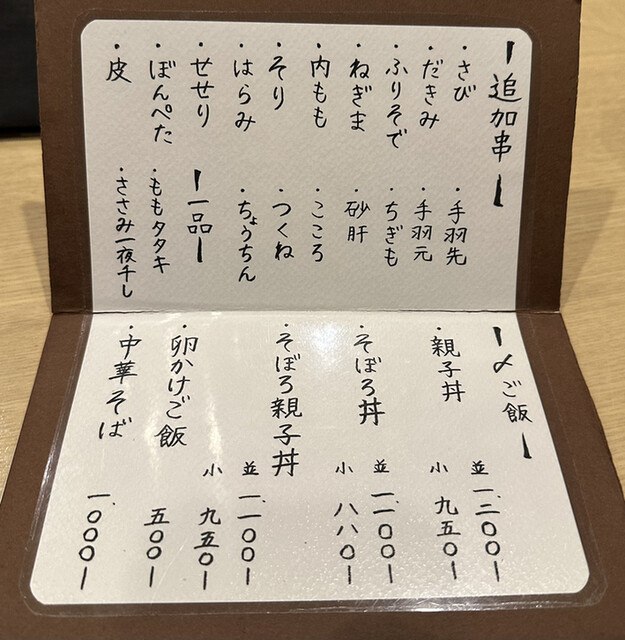 ー追加串ー
・さび
・だきみ
・ふりそで
・ねぎま
・内もも
・そり
・はらみ
・せせり
・ぼんぺた
・皮
・手羽先
・手羽元
・ちぎも
・砂肝
・こころ
・つくね
・ちょうちん
ー一品ー
・ももタタキ
・ささみ一夜干し
ー〆ご飯ー
・親子丼
並 一、二〇〇ー
小 九五〇ー
・そぼろ丼
並 一、一〇〇ー
小 八八〇ー
・そぼろ親子丼
並 一、一〇〇ー
小 九五〇ー
・卵かけご飯 五〇〇ー
・中華そば 一、〇〇〇ー